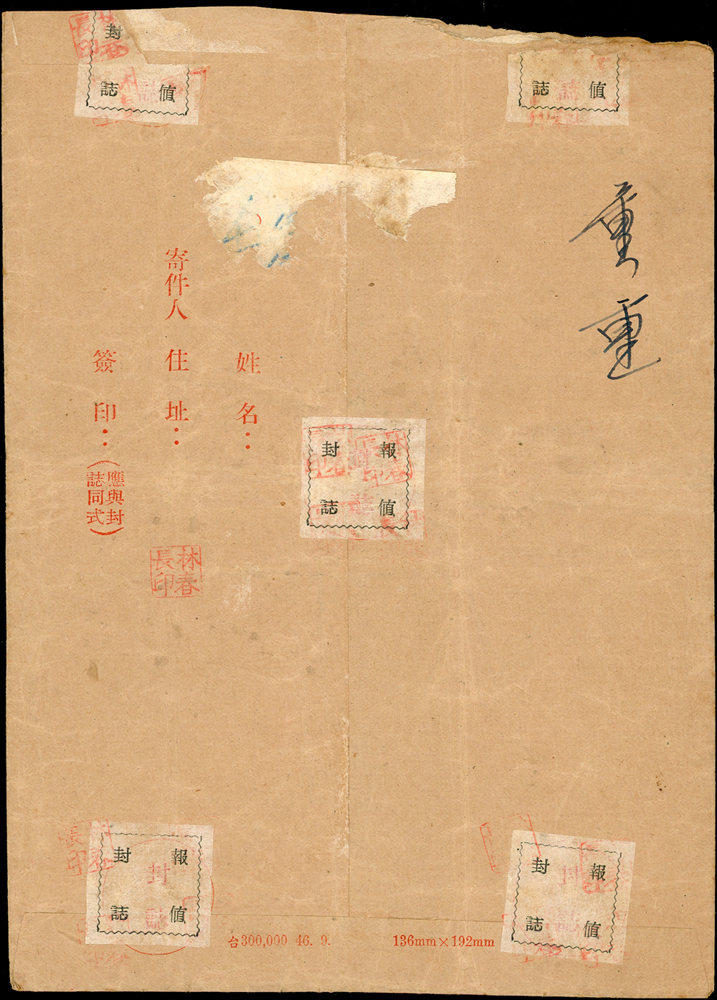 封
誌 值
誌 值
重
重
姓名：
寄件人 住址：
簽印：（應與封誌同式）
報值
封誌
林春
長印
報值
封誌
報值
封誌
台300,000 46. 9. 136mm×192mm